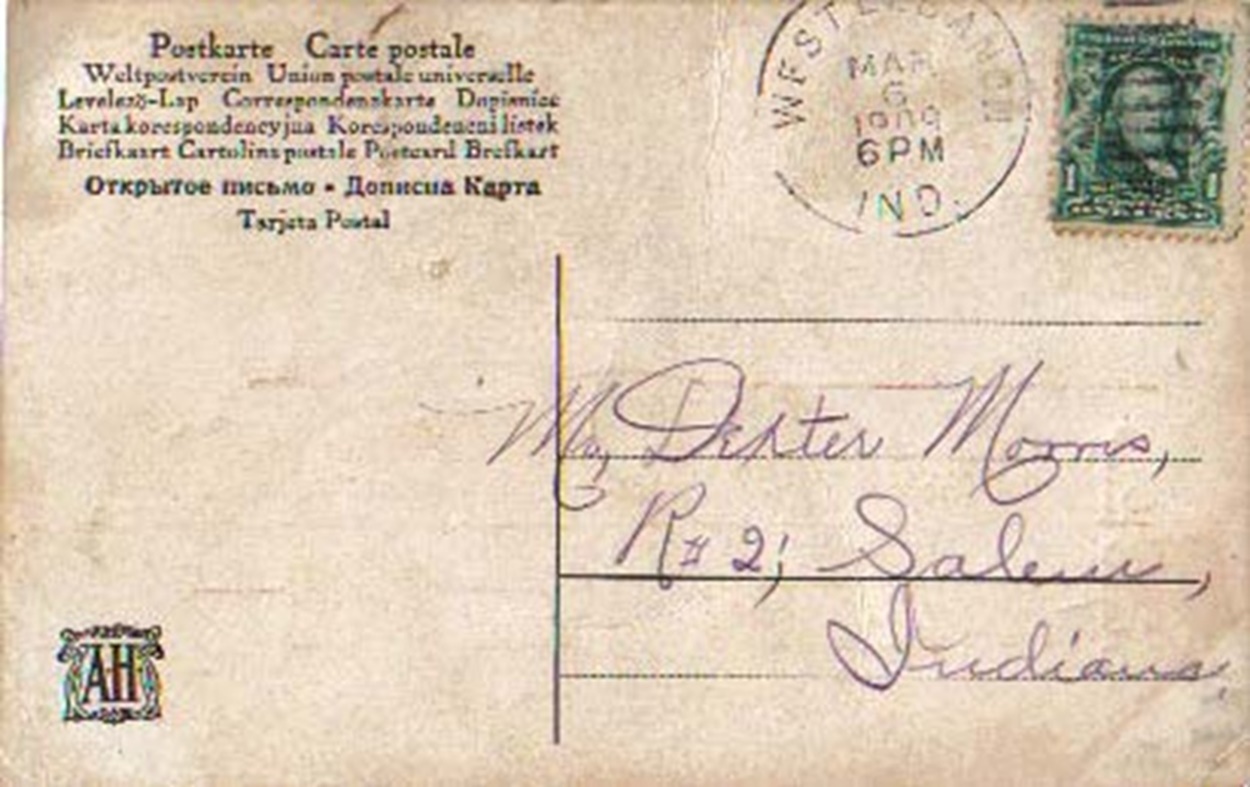 Postkarte Carte postale
Weltpostverein Union postale universelle
Levelező-Lap Correspondenzkarte Dopisnice
Karta korespondencyjna Korespondencni listek
Briefkaart Cartolina postale Postcard Brefkort
Открытое письмо - Дописна Карта
Tarjeta Postal
WEST LEBANON
MAR
6
1909
6 PM
IND.
1 1
Mr. Dexter Morris,
R# 2; Salem,
Indiana,
AH